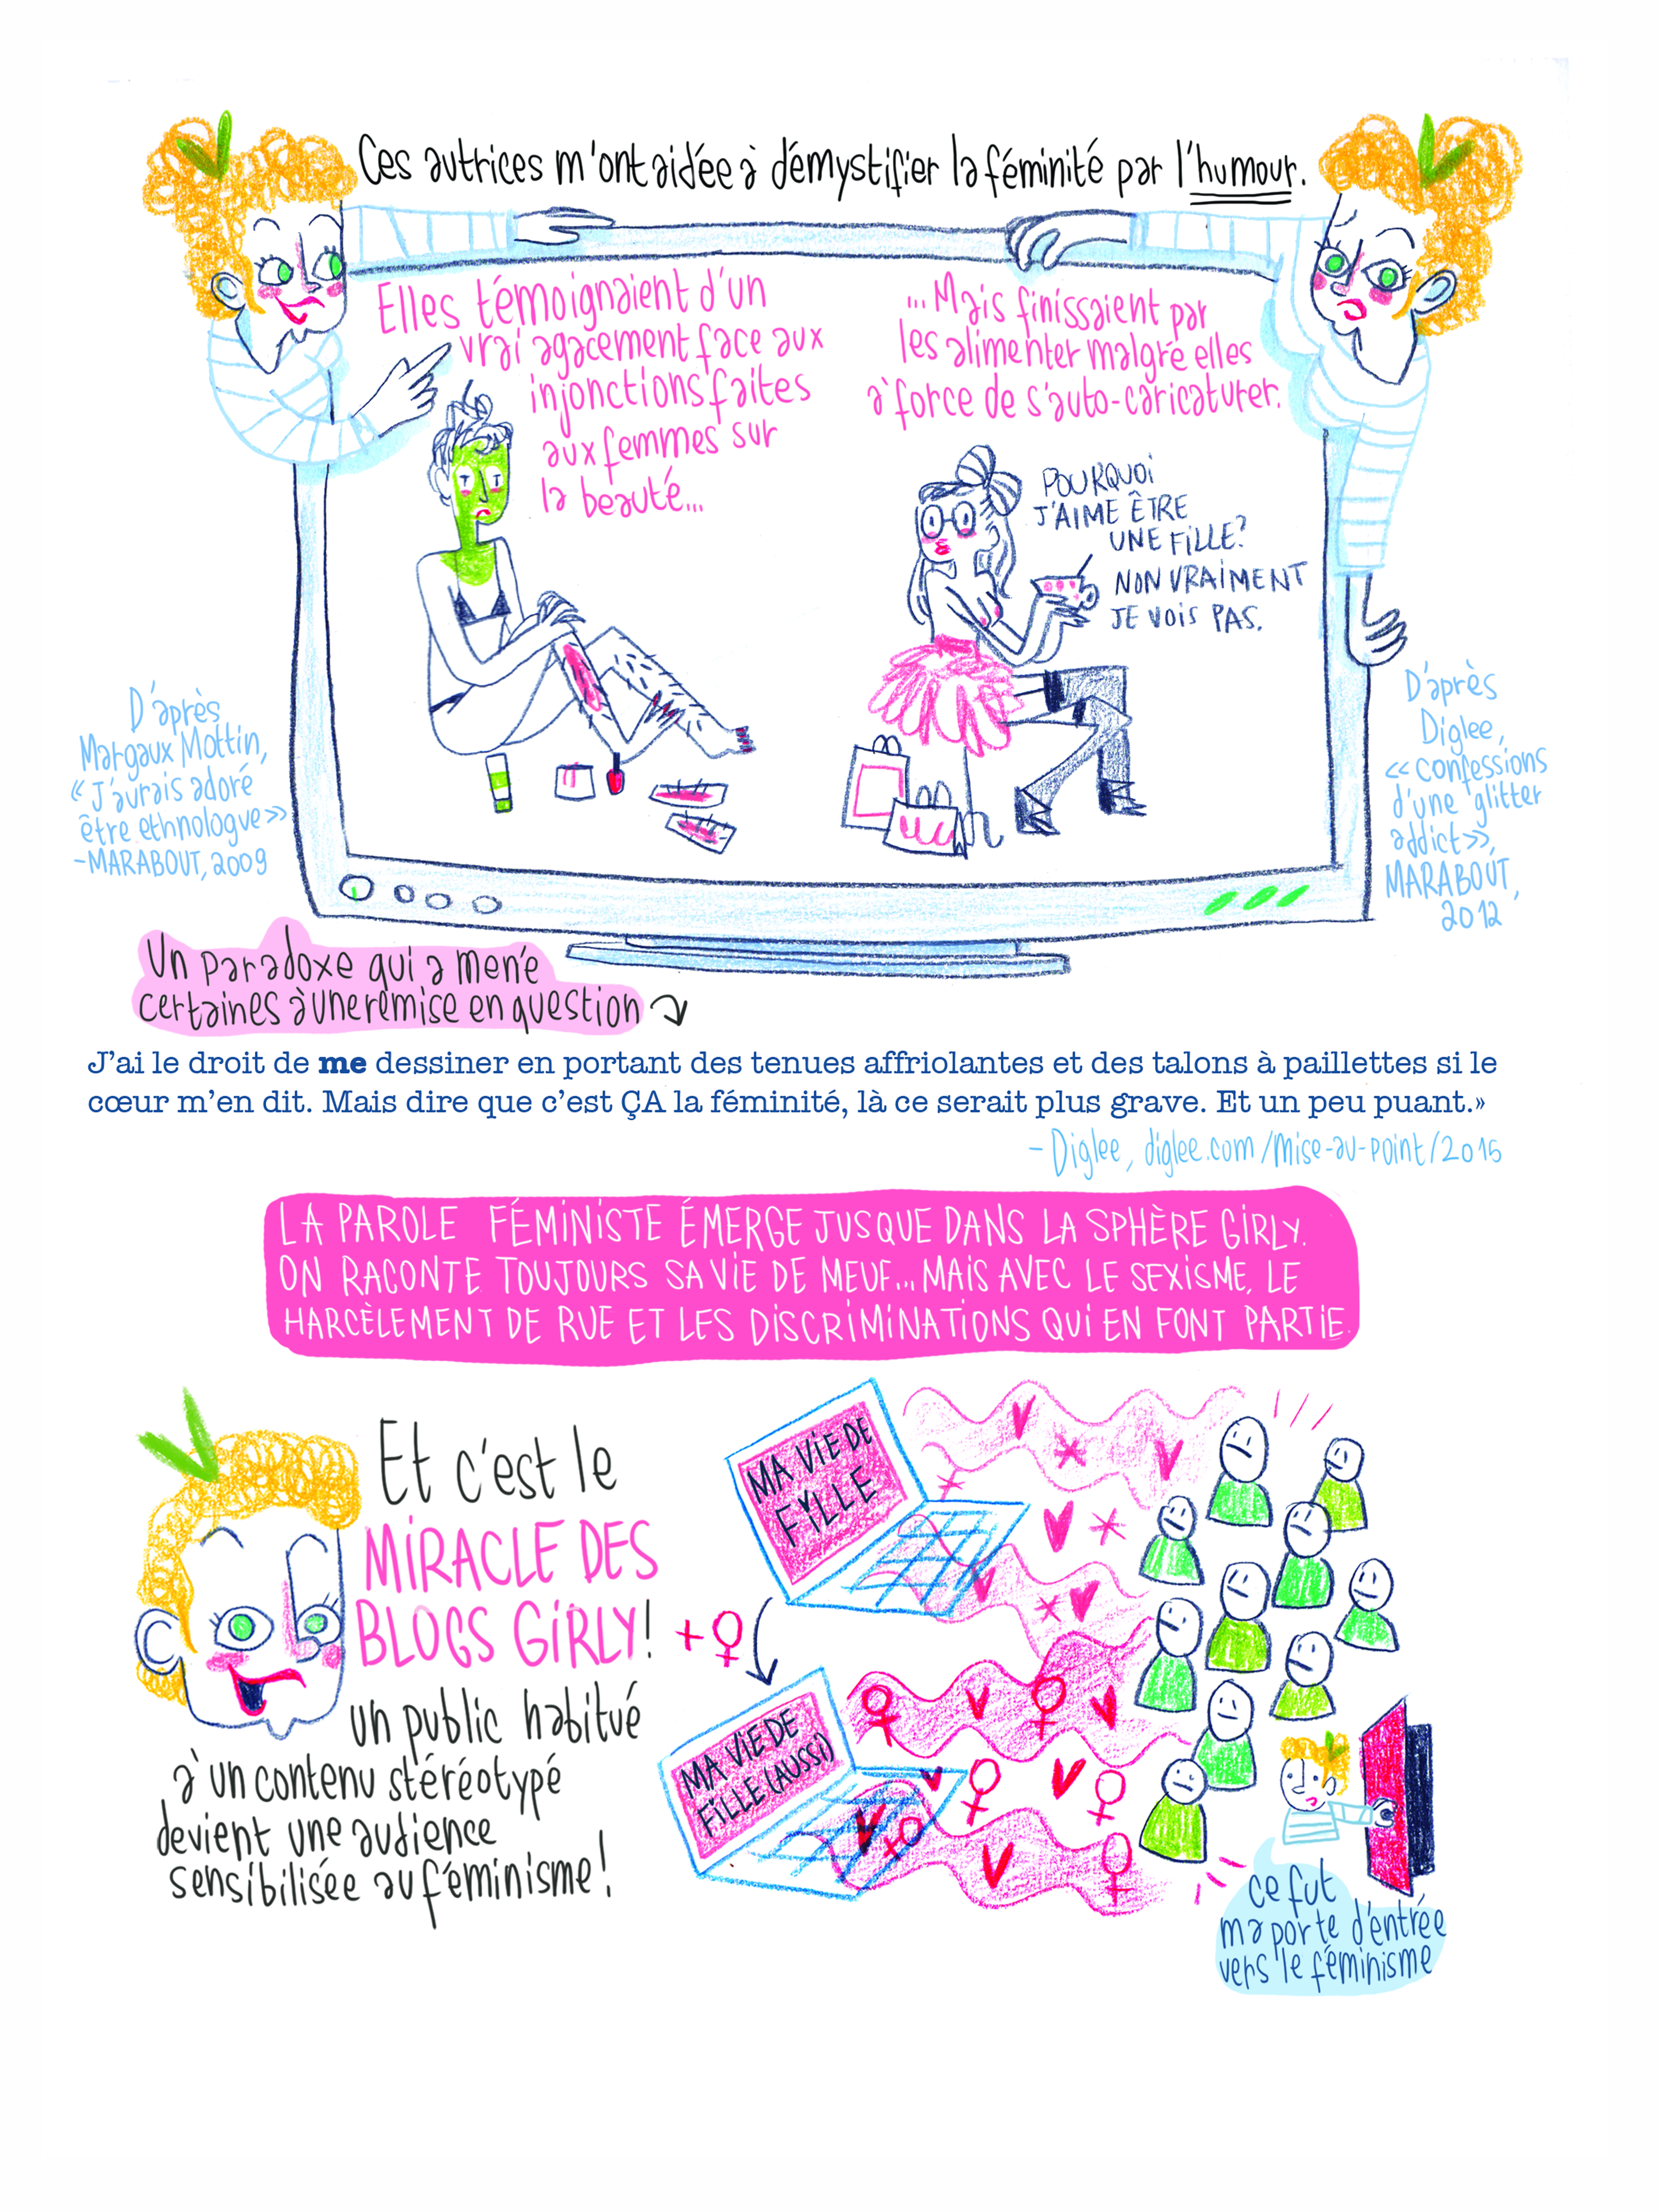 Ces autrices m'ont aidée à démystifier la féminité par l'humour.
Elles témoignaient d'un
vrai agacement face aux
injonctions faites
aux femmes sur
la beauté...
...Mais finissaient par
les alimenter malgré elles
à force de s'auto-caricaturer.
POURQUOI
J'AIME ÊTRE
UNE FILLE?
NON VRAIMENT
JE VOIS PAS.
D'après
Margaux Mottin,
« J'aurais adoré
être ethnologue »
-MARABOUT, 2009
D'après
Diglee,
« Confessions
d'une glitter
addict »,
MARABOUT,
2012
Un paradoxe qui a mené
certaines à une remise en question
J'ai le droit de me dessiner en portant des tenues affriolantes et des talons à paillettes si le
cœur m'en dit. Mais dire que c'est ÇA la féminité, là ce serait plus grave. Et un peu puant.»
- Diglee, diglee.com/mise-au-point/2015
LA PAROLE FÉMINISTE ÉMERGE JUSQUE DANS LA SPHÈRE GIRLY.
ON RACONTE TOUJOURS SA VIE DE MEUF... MAIS AVEC LE SEXISME, LE
HARCÈLEMENT DE RUE ET LES DISCRIMINATIONS QUI EN FONT PARTIE.
Et c'est le
MIRACLE DES
BLOGS GIRLY!
un public habitué
à un contenu stéréotypé
devient une audience
sensibilisée au féminisme!
MA VIE DE
FILLE
+♀
MA VIE DE
FILLE (AUSSI)
Ce fut
ma porte d'entrée
vers le féminisme